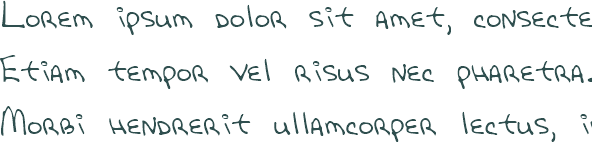 Lorem ipsum dolor sit amet, consecte
Etiam tempor vel risus nec pharetra.
Morbi hendrerit ullamcorper lectus, i